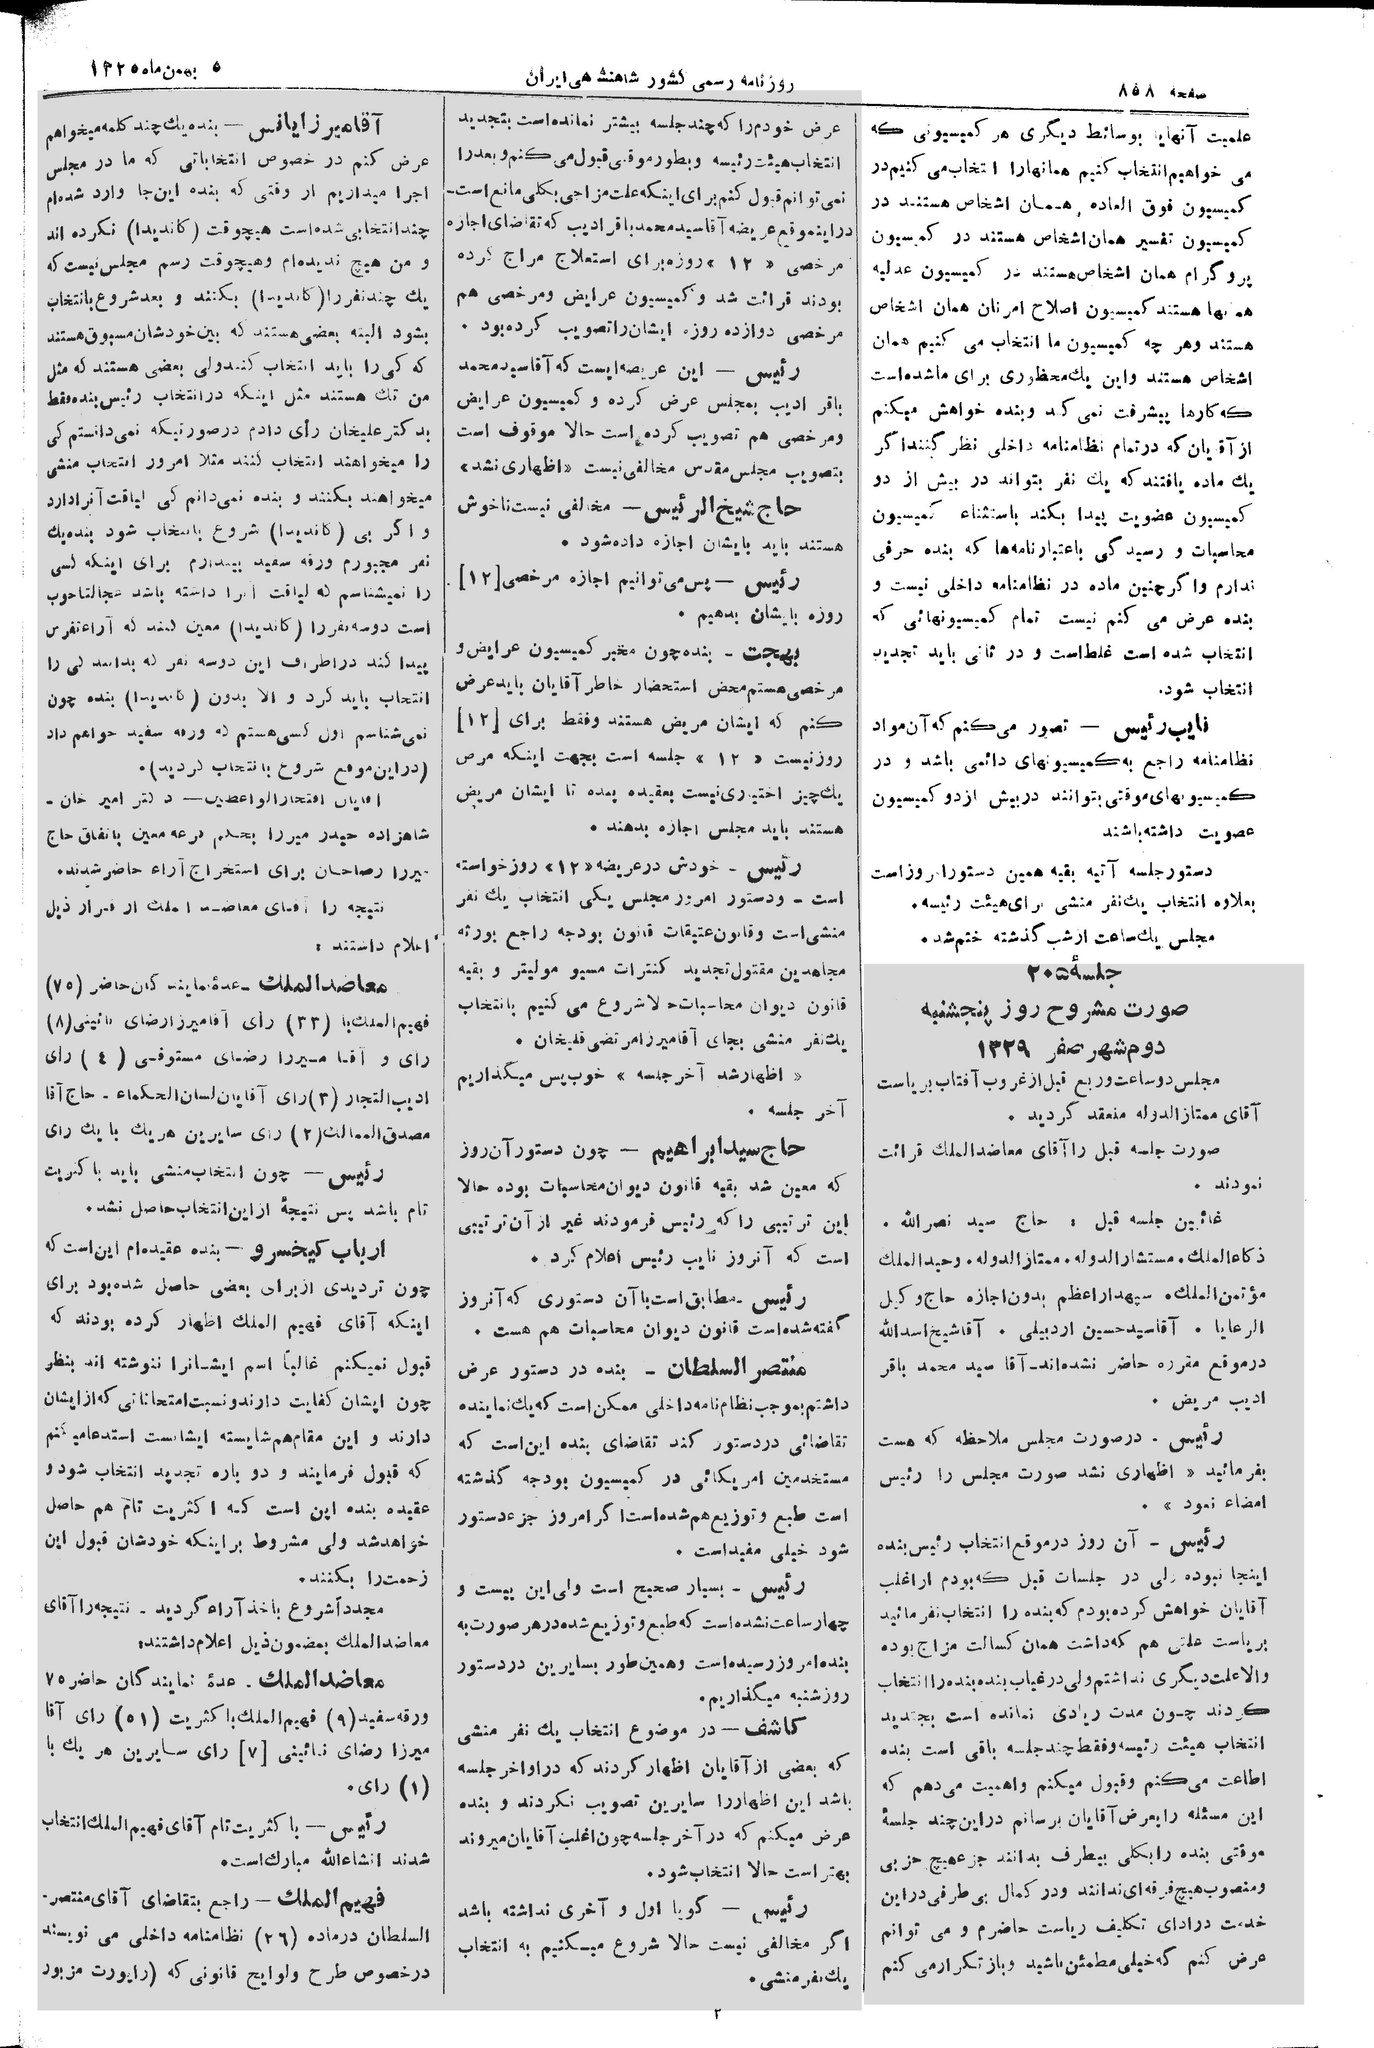 صفحه ۸۵۸
روزنامه رسمی کشور شاهنشاهی ایران
۵ بهمن ماه ۱۳۲۵
علمیت آنهایا بوسائط دیگری هر کمیسیونی که
می خواهیم انتخاب کنیم همانهارا انتخاب می کنیم در
کمیسیون فوق العاده , همان اشخاص هستند در
کمیسیون تفسیر همان اشخاص هستند در کمیسیون
پروگرام همان اشخاص هستند در کمیسیون عدلیه
همانها هستند کمیسیون اصلاح امرنان همان اشخاص
هستند وهر چه کمیسیون ما انتخاب می کنیم همان
اشخاص هستند واین یك محظوری برای ماشده است
که کارها پیشرفت نمی کند وبنده خواهش میکنم
از آقایان که در تمام نظامنامه داخلی نظر کنند اگر
یك ماده یافتند که یك نفر بتواند در بیش از دو
کمیسیون عضویت پیدا بکند باستثناء کمیسیون
محاسبات و رسیدگی باعتبارنامه‌ها که بنده حرفی
ندارم واگر چنین ماده در نظامنامه داخلی نیست و
بنده عرض می کنم نیست تمام کمیسیونهائی که
انتخاب شده است غلط است و در ثانی باید تجدید
انتخاب شود.
نایب رئیس — تصور می‌کنم که آن مواد
نظامنامه راجع به کمیسیونهای دائمی باشد و در
کمیسیونهای موقتی بتوانند در بیش از دو کمیسیون
عضویت داشته باشند
دستور جلسه آتیه بقیه همین دستور امروز است
بعلاوه انتخاب یك نفر منشی برای هیئت رئیسه.
مجلس یك ساعت از شب گذشته ختم شد.
جلسهٔ ۲۰۵
صورت مشروح روز پنجشنبه
دوم شهر صفر ۱۳۲۹
مجلس دو ساعت و ربع قبل از غروب آفتاب بریاست
آقای ممتاز الدوله منعقد گردید .
صورت جلسه قبل را آقای معاضد الملك قرائت
نمودند .
غائبین جلسه قبل : حاج سید نصرالله .
ذکاء الملك. مستشار الدوله. ممتاز الدوله. وحید الملك
مؤتمن الملك. سپهدار اعظم بدون اجازه حاج وکیل
الرعایا . آقا سید حسین اردبیلی . آقا شیخ اسد الله
در موقع مقرره حاضر نشده‌اند ـ آقا سید محمد باقر
ادیب مریض .
رئیس ـ در صورت مجلس ملاحظه که هست
بفرمائید « اظهاری نشد صورت مجلس را رئیس
امضاء نمود » .
رئیس ـ آن روز در موقع انتخاب رئیس بنده
اینجا نبوده ولی در جلسات قبل که بودم از اغلب
آقایان خواهش کرده بودم که بنده را انتخاب نفرمائید
بریاست علتی هم که داشت همان کسالت مزاج بوده
والا علت دیگری نداشتم ولی در غیاب بنده بنده را انتخاب
کردند چون مدت زیادی نمانده است بتجدید
انتخاب هیئت رئیسه وفقط چند جلسه باقی است بنده
اطاعت می‌کنم وقبول میکنم واهمیت می‌دهم که
این مسئله را بعرض آقایان برسانم در این چند جلسهٔ
موقتی بنده را بکلی بیطرف بدانند جزء هیچ حزبی
ومنصوب هیچ فرقه‌ای ندانند ودر کمال بی طرفی در این
خدمت در ادای تکلیف ریاست حاضرم و می توانم
عرض کنم که خیلی مطمئن باشید وباز تکرار می کنم
عرض خودم را که چند جلسه بیشتر نمانده است بتجدید
انتخاب هیئت رئیسه وبطور موقتی قبول می کنم وبعد را
نمی توانم قبول کنم برای اینکه علت مزاجی بکلی مانع است ـ
در این موقع عریضه آقا سید محمد باقر ادیب که تقاضای اجازه
مرخصی « ۱۲ » روزه برای استعلاج مزاج کرده
بودند قرائت شد و کمیسیون عرایض ومرخصی هم
مرخصی دوازده روزه ایشان را تصویب کرده بود .
رئیس — این عریضه ایست که آقا سید محمد
باقر ادیب بمجلس عرض کرده و کمیسیون عرایض
ومرخصی هم تصویب کرده است حالا موقوف است
بتصویب مجلس مقدس مخالفی نیست «اظهاری نشد»
حاج شیخ الرئیس — مخالفی نیست ناخوش
هستند باید بایشان اجازه داده شود .
رئیس — پس می‌توانیم اجازه مرخصی [۱۲]
روزه بایشان بدهیم .
بهجت ـ بنده چون مخبر کمیسیون عرایض و
مرخصی هستم محض استحضار خاطر آقایان باید عرض
کنم که ایشان مریض هستند وفقط برای [۱۲]
روز نیست « ۱۲ » جلسه است بجهت اینکه مرض
یك چیز اختیاری نیست بعقیده بنده تا ایشان مریض
هستند باید مجلس اجازه بدهند .
رئیس ـ خودش در عریضه «۱۲» روز خواسته
است ـ ودستور امروز مجلس یکی انتخاب یك نفر
منشی است وقانون عتیقات قانون بودجه راجع بورثه
مجاهدین مقتول تجدید کنترات مسیو مولیتر و بقیه
قانون دیوان محاسبات حالا شروع می کنیم بانتخاب
یك نفر منشی بجای آقا میرزا مرتضی قلیخان .
« اظهار شد آخر جلسه » خوب پس میگذاریم
آخر جلسه .
حاج سید ابراهیم — چون دستور آن روز
که معین شد بقیه قانون دیوان محاسبات بوده حالا
این ترتیبی را که رئیس فرمودند غیر از آن ترتیبی
است که آنروز نایب رئیس اعلام کرد .
رئیس ـ مطابق است با آن دستوری که آنروز
گفته شده است قانون دیوان محاسبات هم هست .
منتصر السلطان ـ بنده در دستور عرض
داشتم بموجب نظام‌نامه داخلی ممکن است که یك نماینده
تقاضائی در دستور کند تقاضای بنده این است که
مستخدمین امریکائی در کمیسیون بودجه گذشته
است طبع و توزیع هم شده است اگر امروز جزء دستور
شود خیلی مفید است .
رئیس ـ بسیار صحیح است ولی این بیست و
چهار ساعت نشده است که طبع و توزیع شده در هر صورت به
بنده امروز رسیده است وهمین طور بسایرین در دستور
روز شنبه میگذاریم.
کاشف — در موضوع انتخاب یك نفر منشی
که بعضی از آقایان اظهار کردند که در اواخر جلسه
باشد این اظهار را سایرین تصویب نکردند و بنده
عرض میکنم که در آخر جلسه چون اغلب آقایان میروند
بهتر است حالا انتخاب شود.
رئیس — گویا اول و آخری نداشته باشد
اگر مخالفی نیست حالا شروع میکنیم به انتخاب
یك نفر منشی.
آقا میرزا یانس — بنده یك چند کلمه میخواهم
عرض کنم در خصوص انتخاباتی که ما در مجلس
اجرا میداریم از وقتی که بنده این جا وارد شده‌ام
چند انتخابی شده است هیچوقت (کاندیدا) نکرده اند
و من هیچ ندیده‌ام وهیچوقت رسم مجلس نیست که
یك چند نفر را (کاندیدا) بکنند و بعد شروع بانتخاب
بشود البته بعضی هستند که بین خودشان مسبوق هستند
که کی را باید انتخاب کنند ولی بعضی هستند که مثل
من تك هستند مثل اینکه در انتخاب رئیس بنده فقط
بدکتر علیخان رأی دادم در صورتیکه نمی دانستم کی
را میخواهند انتخاب کنند مثلا امروز انتخاب منشی
میخواهند بکنند و بنده نمی‌دانم کی لیاقت آنرا دارد
و اگر بی (کاندیدا) شروع بانتخاب شود بنده یك
نفر مجبورم ورقه سفید بیندازم برای اینکه کسی
را نمیشناسم که لیاقت آنرا داشته باشد عجالتا خوب
است دوسه نفر را (کاندیدا) معین کنند که آراء تفرس
پیدا کند در اطراف این دوسه نفر که بدانند کی را
انتخاب باید کرد و الا بدون (کاندیدا) بنده چون
نمی شناسم اول کسی هستم که ورقه سفید خواهم داد
(در این موقع شروع بانتخاب گردید).
آقایان افتخار الواعظین — دکتر امیر خان ـ
شاهزاده حیدر میرزا بحکم قرعه معین باتفاق حاج
میرزا رضاخان برای استخراج آراء حاضر شدند.
نتیجه را آقای معاضد الملك از قرار ذیل
اعلام داشتند :
معاضد الملك ـ عدهٔ نمایندگان حاضر (۷۵)
فهیم الملك با (۳۳) رأی آقا میرزا رضای نائینی (۸)
رای و آقا میرزا رضای مستوفی (۴) رأی
ادیب التجار (۳) رأی آقایان لسان الحکماء ـ حاج آقا
مصدق الممالك (۲) رای سایرین هریك با یك رای
رئیس — چون انتخاب منشی باید باکثریت
تام باشد پس نتیجهٔ از این انتخاب حاصل نشد.
ارباب کیخسرو — بنده عقیده‌ام این است که
چون تردیدی از برای بعضی حاصل شده بود برای
اینکه آقای فهیم الملك اظهار کرده بودند که
قبول نمیکنم غالباً اسم ایشانرا ننوشته اند بنظر
چون ایشان کفایت دارند و نسبت امتحاناتی که از ایشان
دارند و این مقام هم شایسته ایشانست استدعا میکنم
که قبول فرمایند و دو باره تجدید انتخاب شود و
عقیده بنده این است که اکثریت تام هم حاصل
خواهد شد ولی مشروط بر اینکه خودشان قبول این
زحمت را بکنند.
مجدداً شروع باخذ آراء گردید ـ نتیجه را آقای
معاضد الملك بمضمون ذیل اعلام داشتند:
معاضد الملك ـ عدهٔ نمایندگان حاضر ۷۵
ورقه سفید (۹) فهیم الملك با کثریت (۵۱) رای آقا
میرزا رضای نائینی [۷] رای سایرین هر یك با
(۱) رای.
رئیس — با کثریت تام آقای فهیم الملك انتخاب
شدند انشاءالله مبارك است.
فهیم الملك — راجع بتقاضای آقای منتصر ـ
السلطان در ماده (۲۶) نظامنامه داخلی می نویسند
در خصوص طرح ولوایح قانونی که (راپورت مزبور
۲